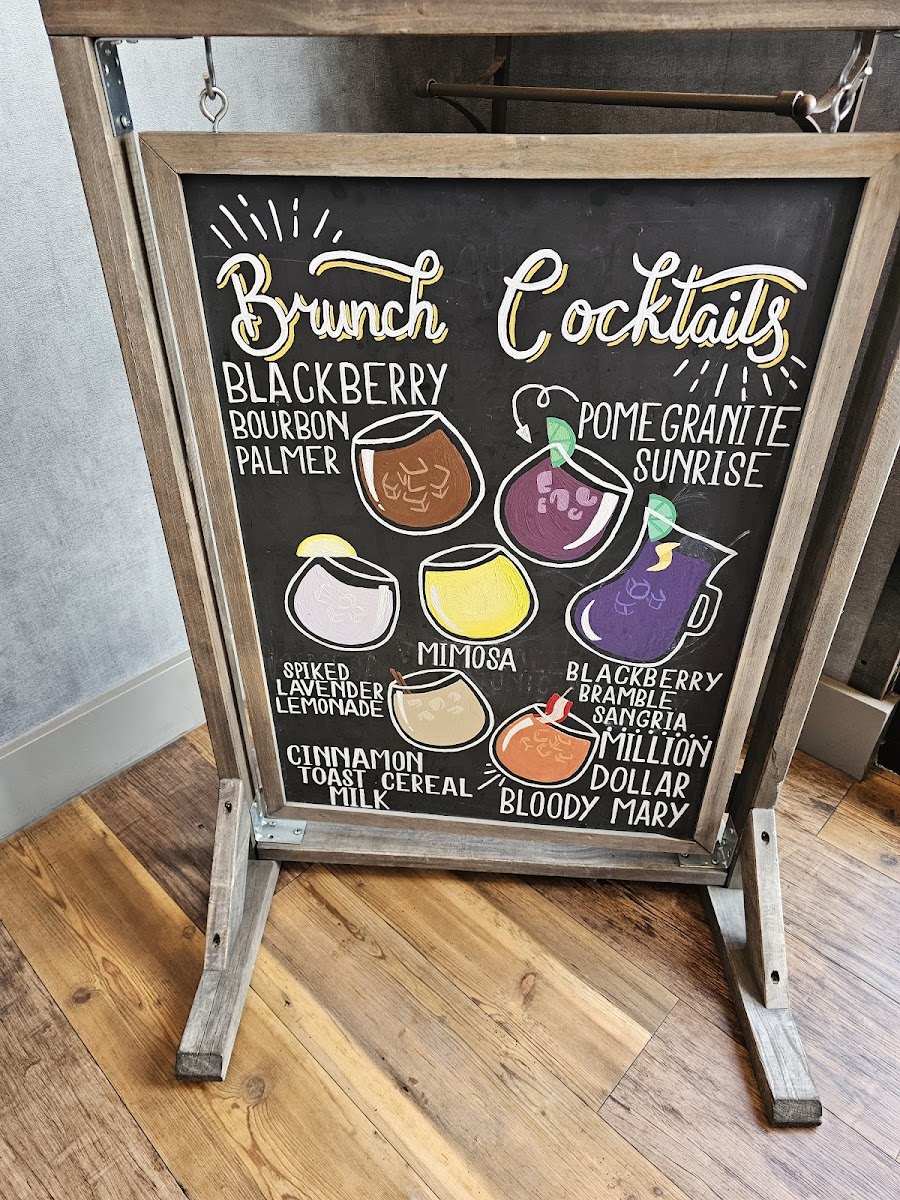 Brunch Cocktails
BLACKBERRY
BOURBON
PALMER
POMEGRANITE
SUNRISE
MIMOSA
SPIKED
LAVENDER
LEMONADE
BLACKBERRY
BRAMBLE
SANGRIA
CINNAMON
TOAST CEREAL
MILK
MILLION
DOLLAR
BLOODY MARY